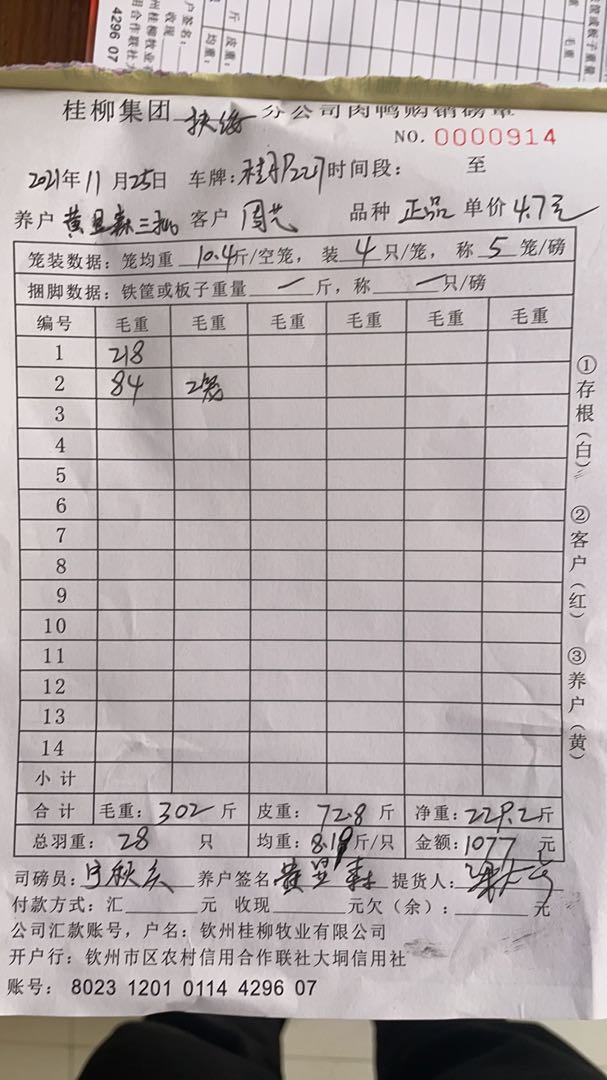 桂柳集团 扶绥 分公司肉鸭购销磅单
NO. 0000914
2021年11月25日 车牌: 时间段: 至
养户 客户 周芑 品种 正品 单价 4.7元
笼装数据: 笼均重 10.4斤/空笼, 装 4 只/笼, 称 5 笼/磅
捆脚数据: 铁筐或板子重量 一 斤, 称 一 只/磅
编号 毛重 毛重 毛重 毛重 毛重 毛重
1 218
2 84 2笼
3
4
5
6
7
8
9
10
11
12
13
14
小计
合计 毛重: 302 斤 皮重: 72.8 斤 净重: 229.2斤
总羽重: 28 只 均重: 8.19斤/只 金额: 1077 元
司磅员: 养户签名 提货人:
付款方式: 汇 元 收现 元欠(余): 元
公司汇款账号, 户名: 钦州桂柳牧业有限公司
开户行: 钦州市区农村信用合作联社大垌信用社
账号: 8023 1201 0114 4296 07
①存根(白) ②客户(红) ③养户(黄)